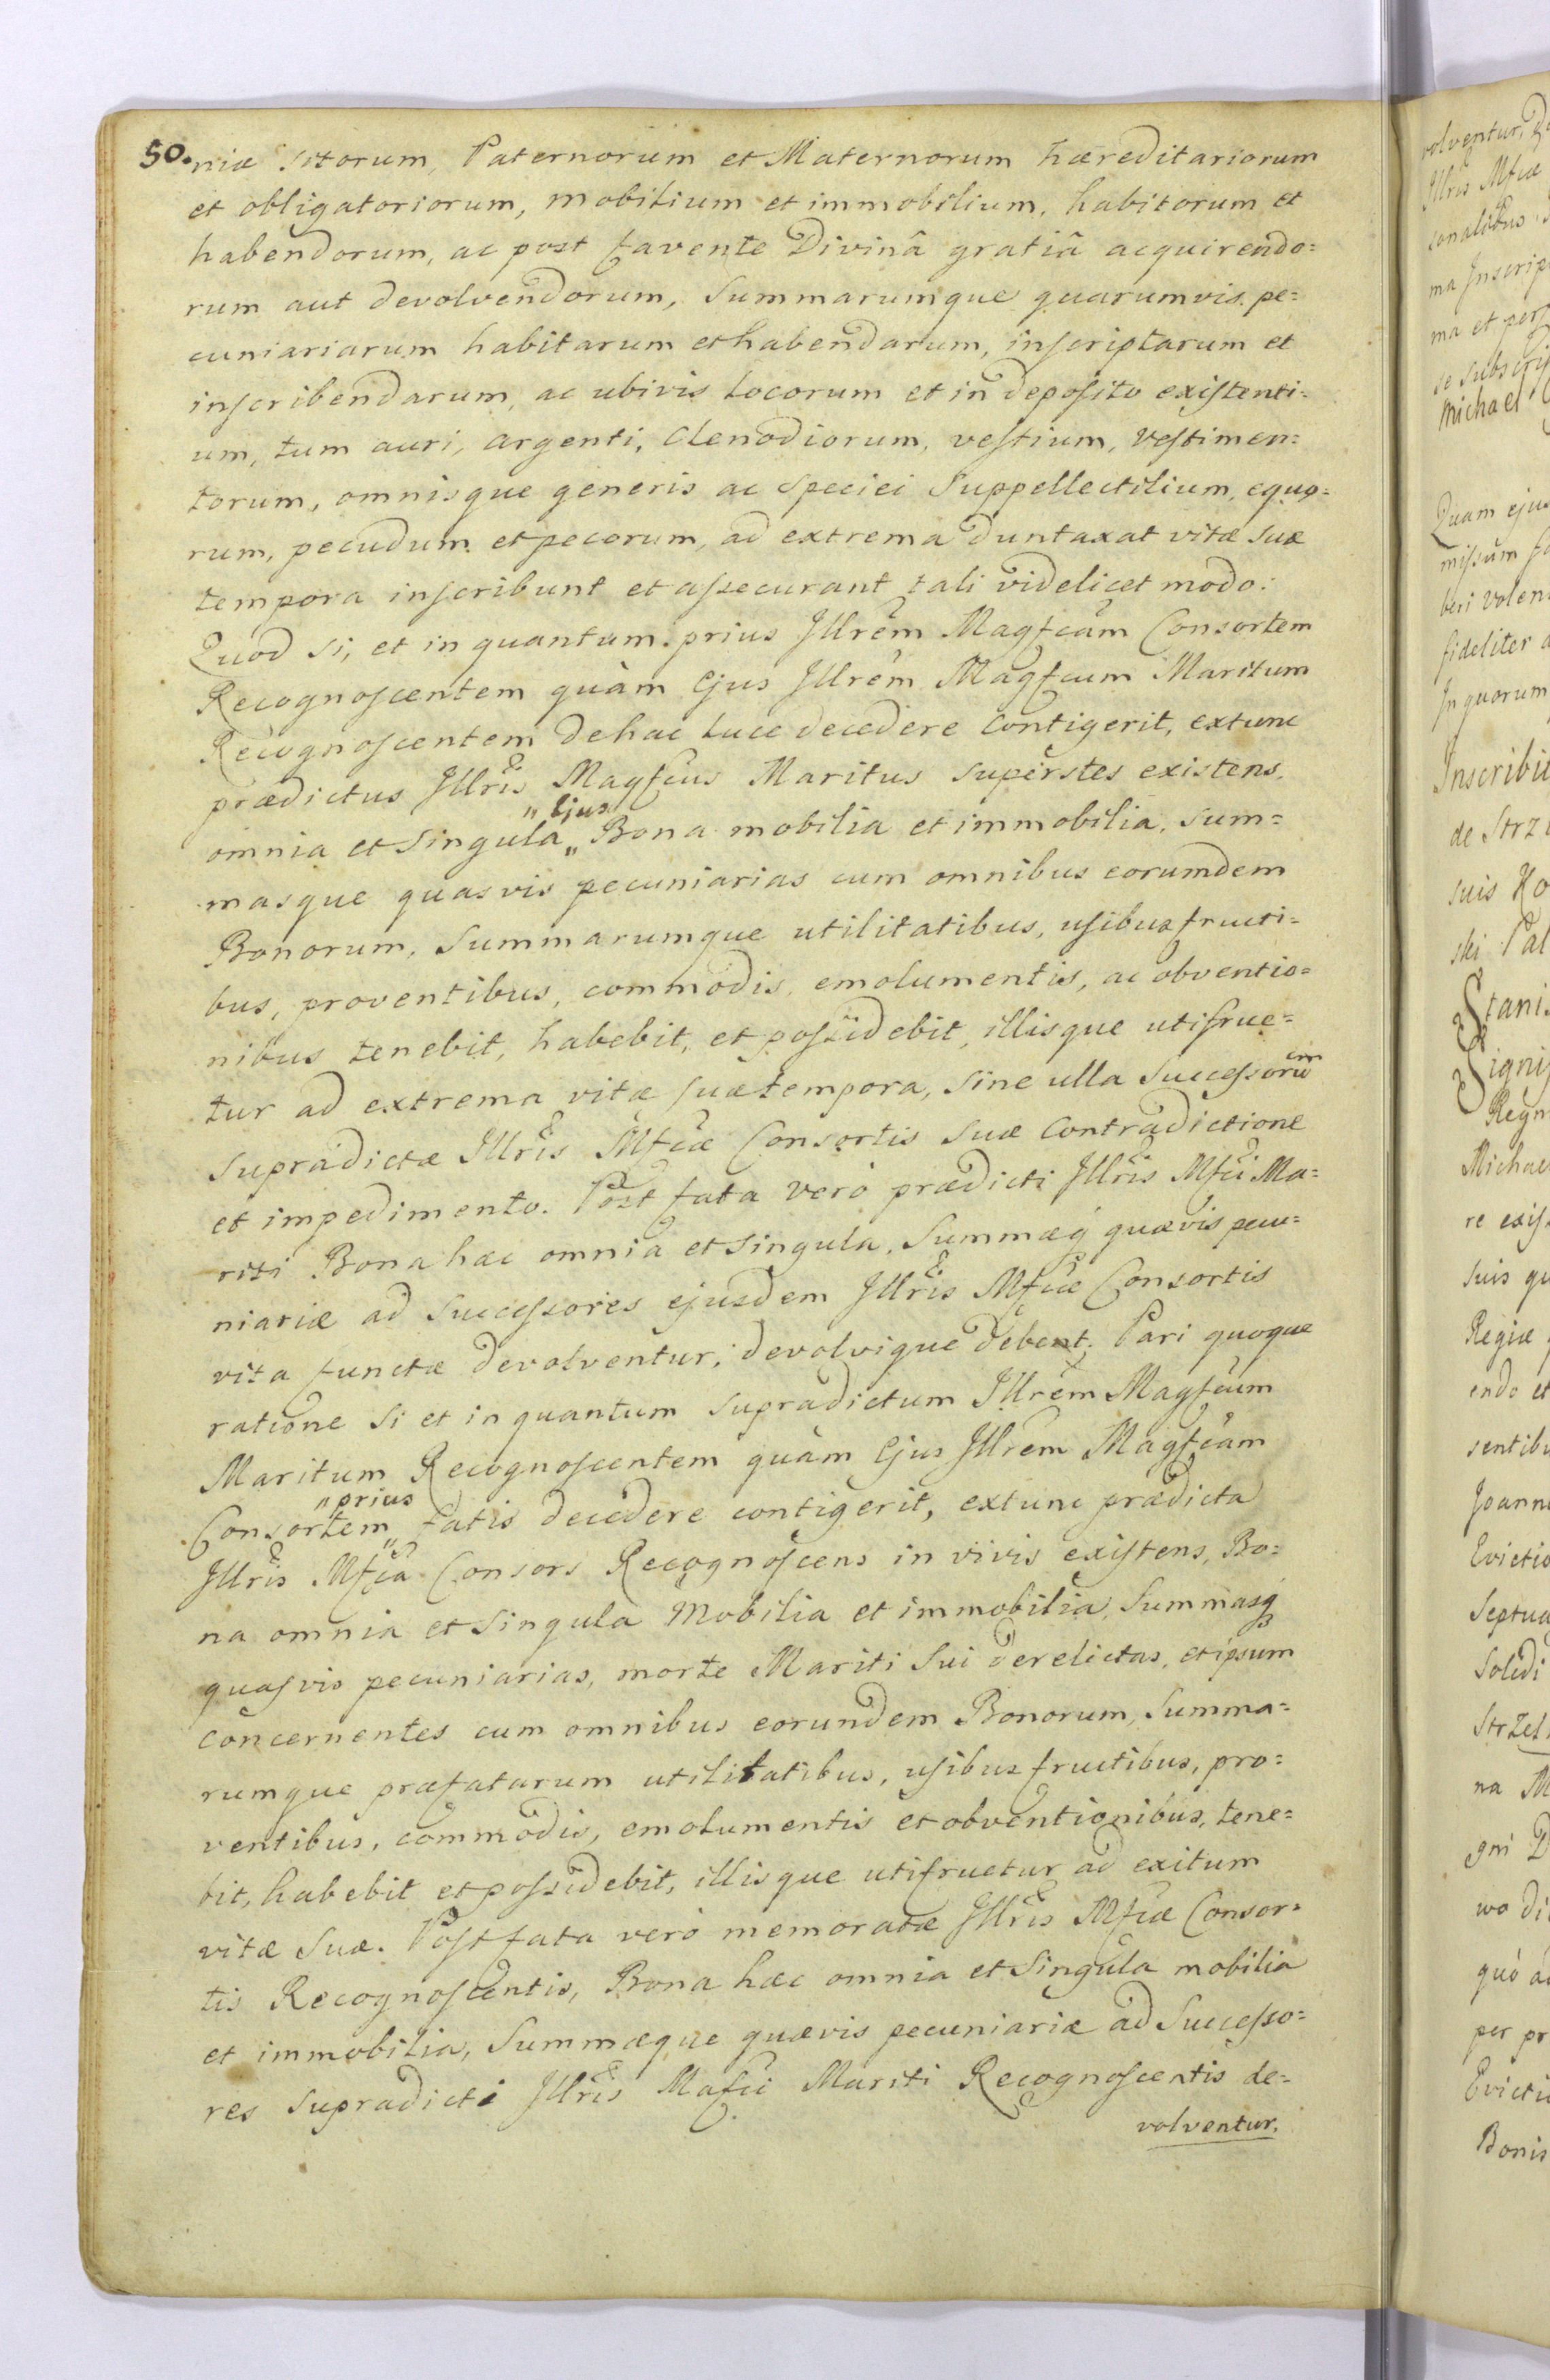 50. niæ sitorum, Paternorum et Maternorum hæreditariorum
et obligatoriorum, mobilium et immobilium, habitorum et
habendorum, ac post favente Divinâ gratiâ acquirendo=
rum aut devolvendorum, Summarumque quarumvis pe=
cuniariarum habitarum et habendarum, inscriptarum et
inscribendarum, ac ubivis locorum et in deposito existenti=
um, tum auri, argenti, Clenodiorum, vestium, vestimen=
torum, omnisque generis ac speciei Suppellectilium, equo=
rum, pecudum et pecorum, ad extrema duntaxat vitæ suæ
tempora inscribunt et assecurant tali videlicet modo:
Quod si, et in quantum prius Jllrem Magfcam Consortem
Recognoscentem quàm Ejus Jllrem Magfcum Maritum
Recognoscentem de hac luce decedere contigerit, extunc
prædictus Jllris Magfcus Maritus superstes existens,
omnia et singula „Ejus„ Bona mobilia et immobilia, sum=
masque quasvis pecuniarias cum omnibus eorumdem
Bonorum, Summarumque utilitatibus, usibusfructi=
bus, proventibus, commodis, emolumentis, ac obventio=
nibus tenebit, habebit, et possidebit, illisque utifrue=
tur ad extrema vitæ suæ tempora, sine ulla Successorum
supradictæ Jllris Mfcæ Consortis suæ contradictione
et impedimento. Post fata verò prædicti Jllris Mfci Ma=
riti Bona hæc omnia et singula, Summæq quævis pecu=
niariæ ad Successores ejusdem Jllris Mfcæ Consortis
vita functæ devolventur, devolvique debent. Pari quoque
ratione si et in quantum supradictum Jllrem Magfcum
Maritum Recognoscentem quàm Ejus Jllrem Magfcam
Consortem „prius„ fatis decedere contigerit, extunc prædicta
Jllris Mfca Consors Recognoscens in vivis existens, Bo=
na omnia et singula Mobilia et immobilia, Summasq
quasvis pecuniarias, morte Mariti Sui derelictas, et ipsum
concernentes cum omnibus eorundem Bonorum, Summa=
rumque præfatarum utilitatibus, usibusfructibus, pro=
ventibus, commodis, emolumentis et obventionibus, tene=
bit, habebit et possidebit, illisque utifruetur ad exitum
vitæ suæ. Post fata verò memoratæ Jllris Mfcæ Consor=
tis Recognoscentis, Bona hæc omnia et singula mobilia
et immobilia, Summæque quævis pecuniariæ ad Successo=
res supradicti Jllris Mafci Mariti Recognoscentis de=
volventur.
volventur,
Jllris Mfcæ
ma et per
se subscri
Michael
Quam eju
missum
beri volen
fideliter
Jn quorum
Jnscribi
de Strz
suis
ski Pal
Stani
Regn
Michae
re exis
suis qu
Regiæ
endo et
sentibu
Joann
Evictio
Septua
Solidi
Strzel
na M
gni D
wo di
quò a
per pr
Evicti
Bonis